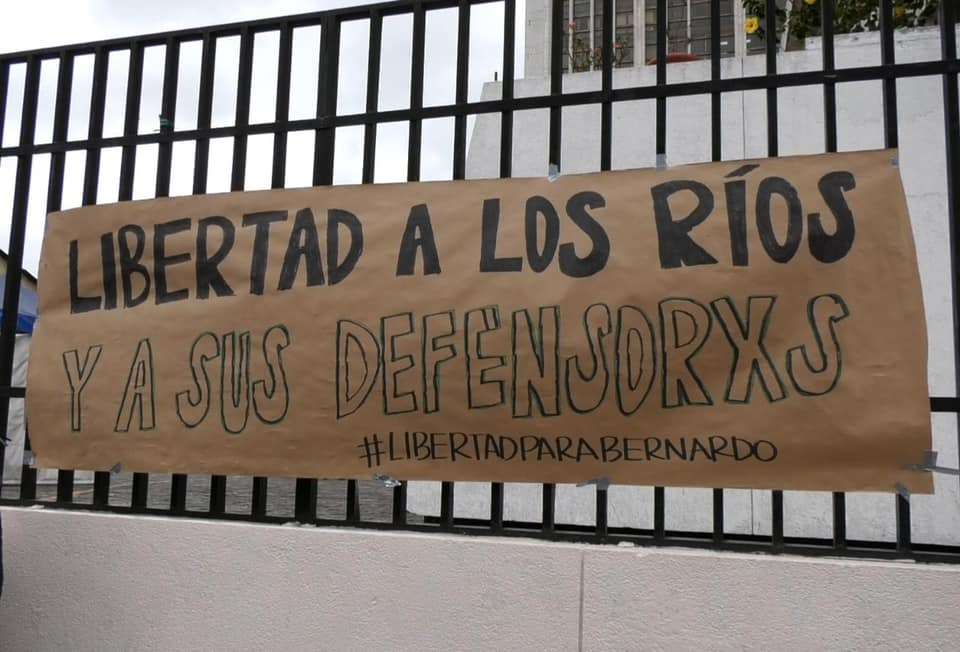 LIBERTAD A LOS RÍOS
Y A SUS DEFENSORXS
#LIBERTADPARABERNARDO